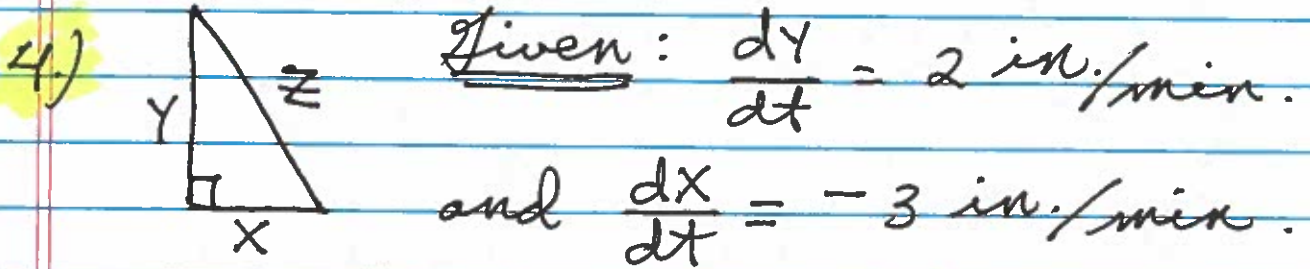 4.) Given: dY/dt = 2 in./min.
Y Z
and dX/dt = -3 in./min.
X